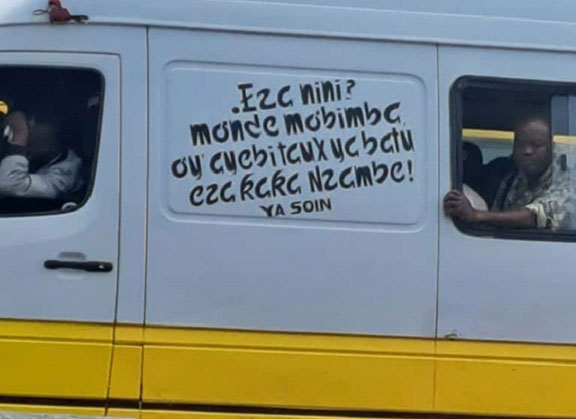 .Eza nini?
monde mobimba
oy' ayebi taux ya batu
eza kaka Nzambe!
YA SOIN